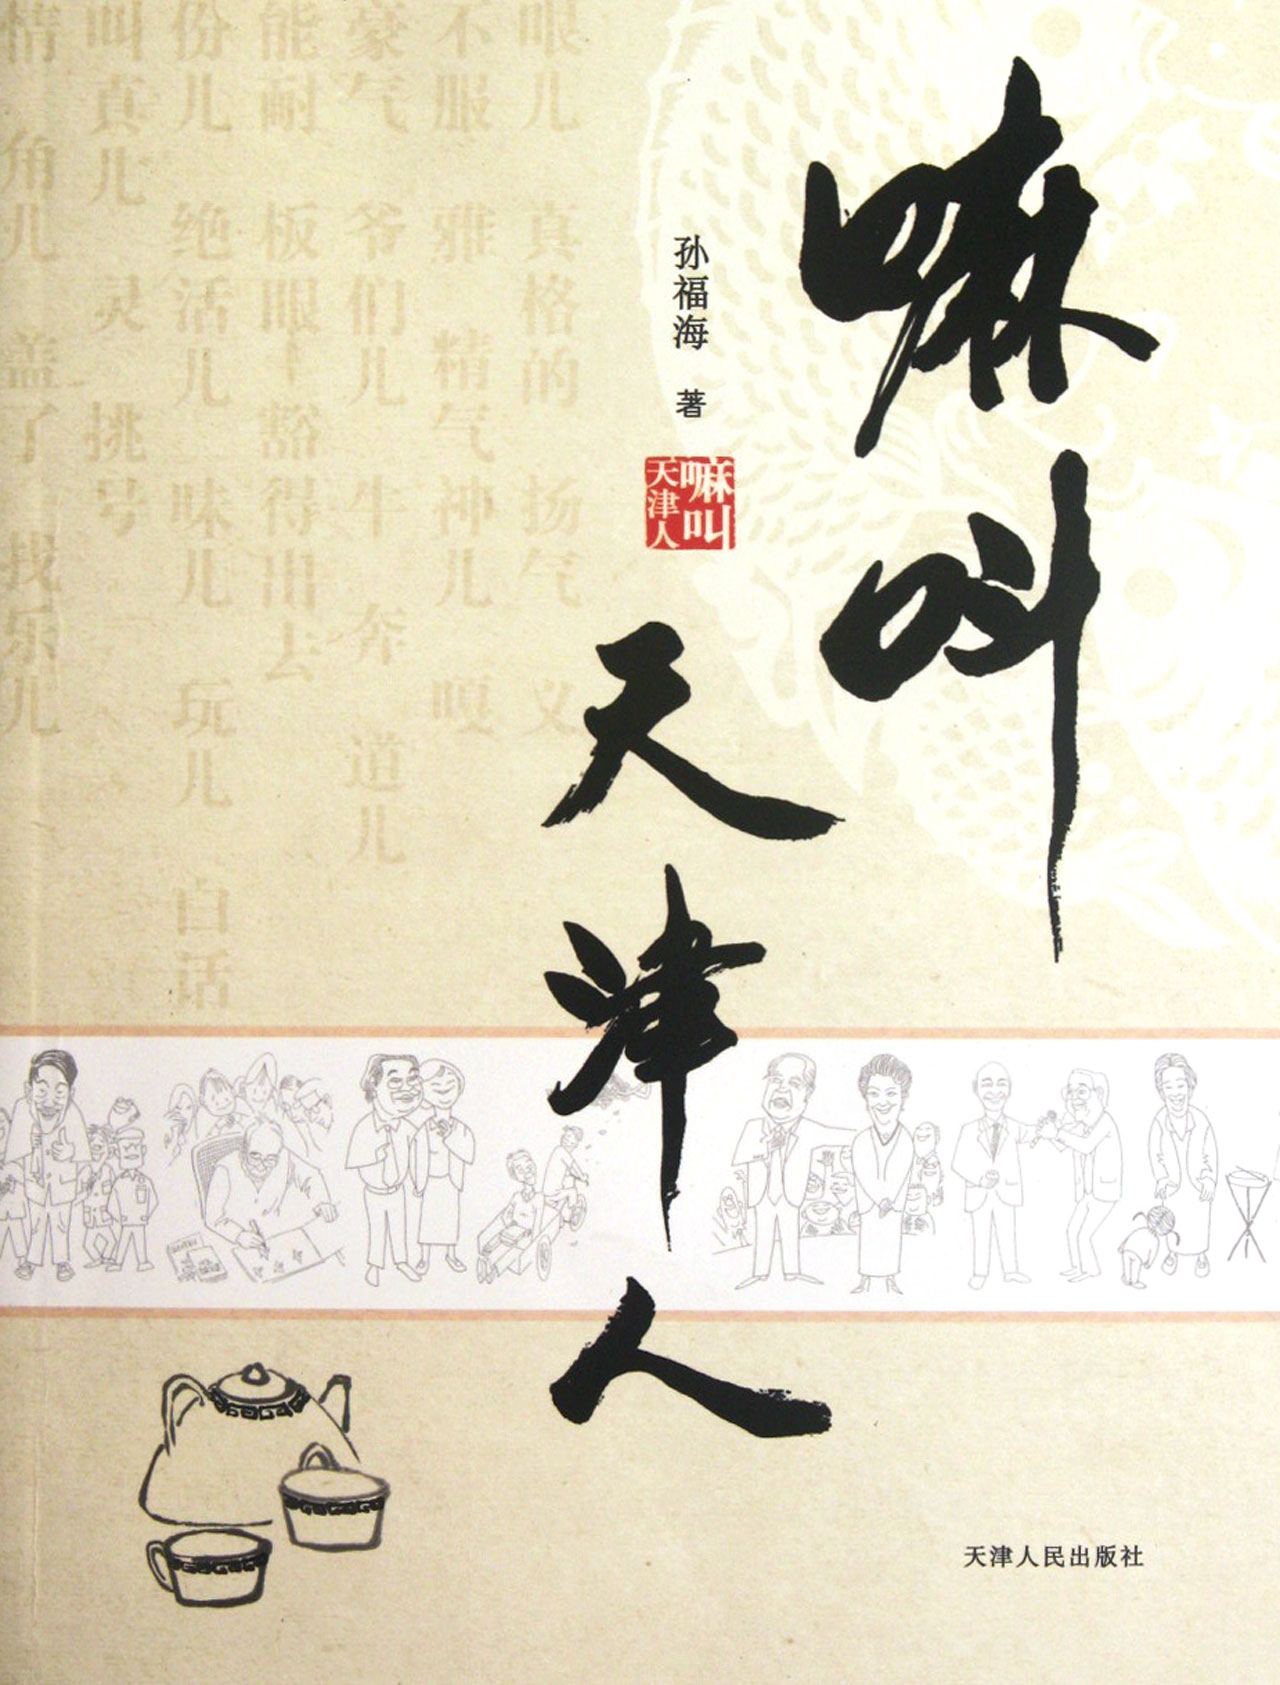 嘛叫
天津人
孙福海 著
嘛叫
天津人
哏儿 真格的 扬气 义
不服 雅 精气神儿 嘎
豪气 爷们儿 牛 奔 道儿
能耐 板眼 豁得出去
份儿 绝活儿 味儿 玩儿 白话
叫真儿 灵 挑号
情 角儿 盖了 找乐儿
天津人民出版社